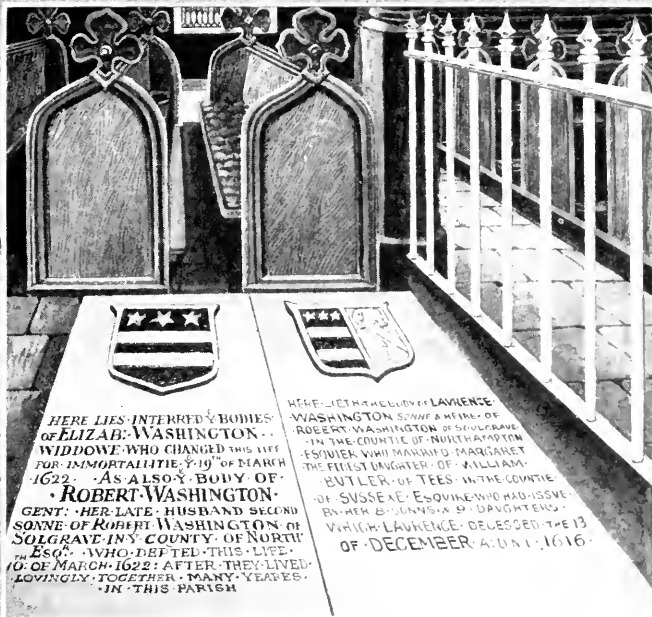 HERE LIES INTERRED Yͤ BODIES
OF ELIZAB: WASHINGTON
WIDDOWE WHO CHANGED THIS LIFE
FOR IMMORTALLITIE Yͤ 19TH OF MARCH
1622 · AS ALSO Yͤ BODY OF
· ROBERT WASHINGTON ·
GENT: HER LATE HUSBAND SECOND
SONNE OF ROBERT WASHINGTON OF
SOLGRAVE IN Yͤ COUNTY OF NORTH
TH ESQR. WHO DEPTED THIS LIFE
10: OF MARCH · 1622: AFTER THEY LIVED
LOVINGLY TOGETHER MANY YEARES
· IN THIS PARISH
HERE LIETH THE BODY OF LAVRENCE
WASHINGTON SONNE & HEIRE OF
ROBERT WASHINGTON OF SOULGRAVE
IN THE COUNTIE OF NORTHAMPTON
ESQUIER WHO MARRIED MARGARET
THE ELDEST DAUGHTER OF WILLIAM
BUTLER OF TEES IN THE COUNTIE
OF SUSSEXE ESQUIRE WHO HAD ISSVE
BY HER 8 SONNS & 9 DAUGHTERS
WHICH LAVRENCE DECESSED THE 13
OF DECEMBER A: DNI · 1616 ·